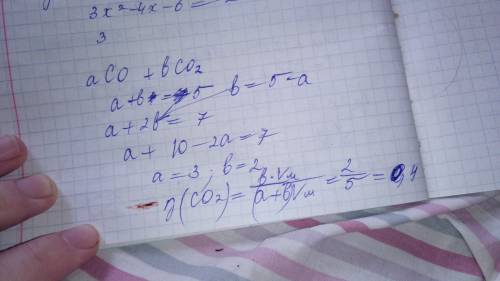 3x²-4x-6=
3
aCO + bCO₂
a+b=5
b=5-a
a+2b=7
a+10-2a=7
a=3; b=2
(CO₂)=b·Vм/(a+b)Vм=2/5=0,4